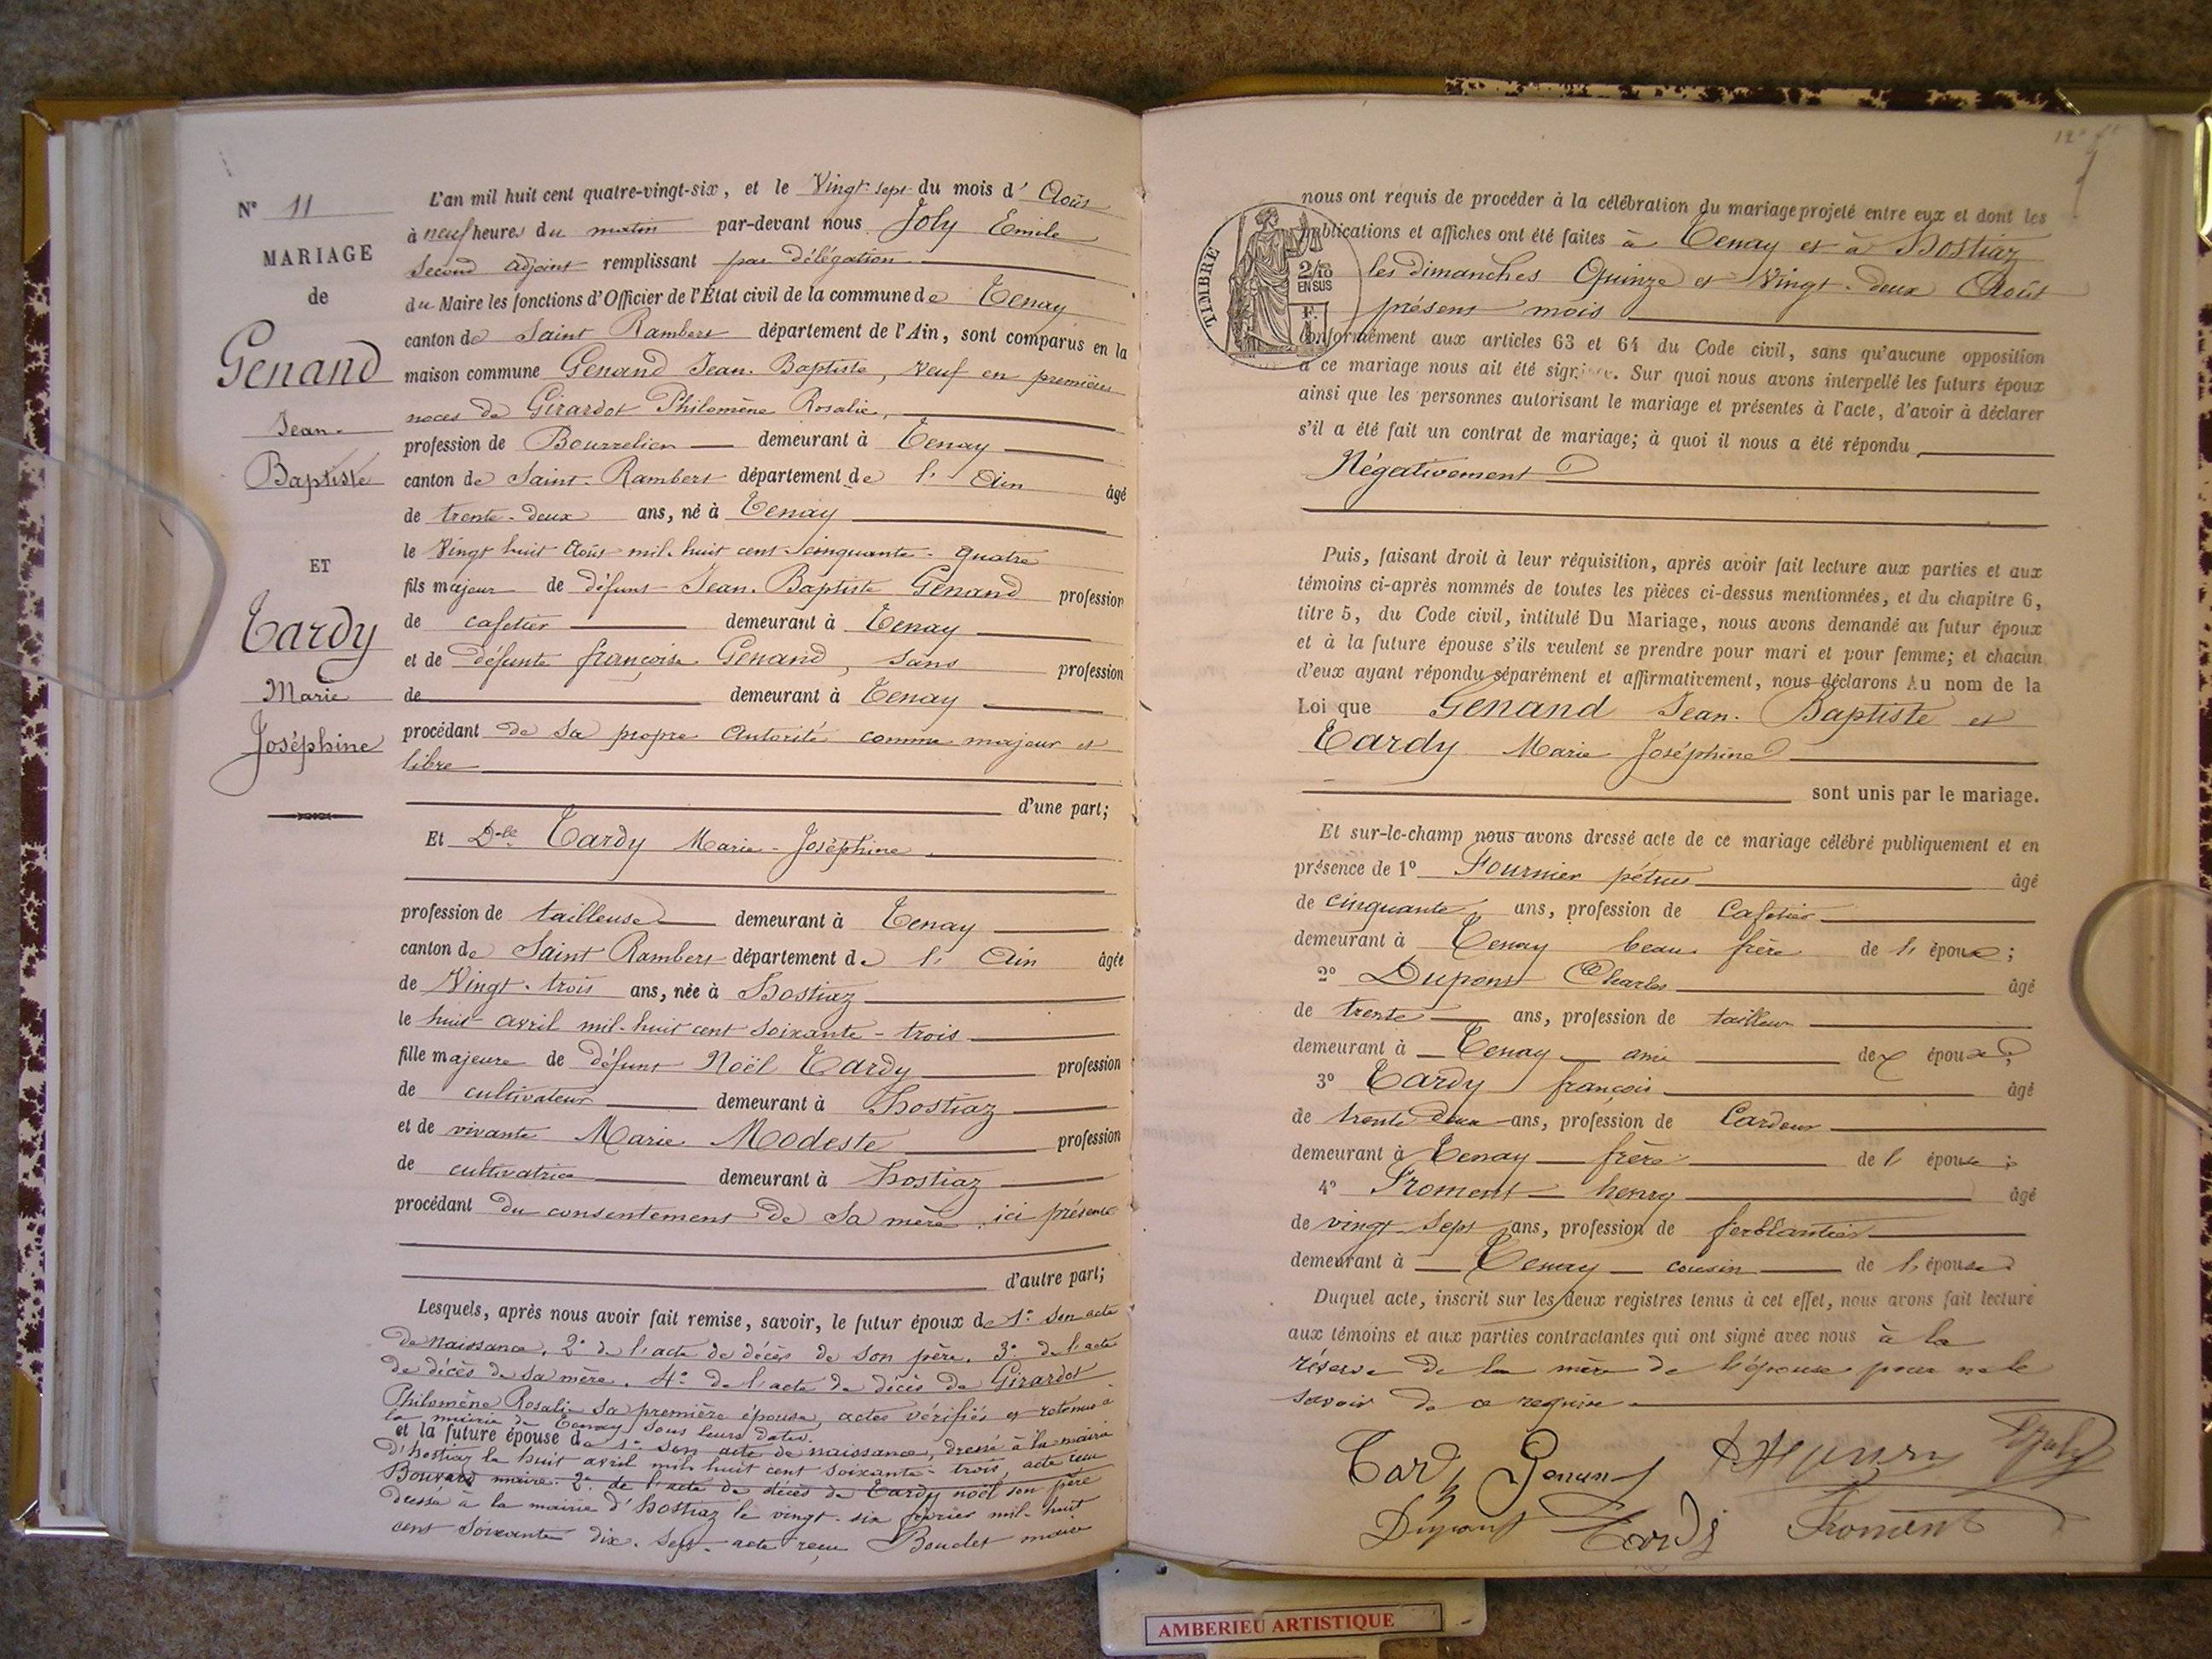 N° 11
MARIAGE
de
Genand
Jean-
Baptiste
ET
Tardy
Marie
Joséphine
L'an mil huit cent quatre-vingt-six, et le Vingt-sept du mois d'Août
à neuf heures du matin par-devant nous Joly Emile
second adjoint remplissant par délégation
du Maire les fonctions d'Officier de l'État civil de la commune de Tenay
canton de Saint Rambert département de l'Ain, sont comparus en la
maison commune Genand Jean-Baptiste, veuf en premières
noces de Girardot Philomène Rosalie,
profession de Bourrelier demeurant à Tenay
canton de Saint-Rambert département de l'Ain âgé
de trente-deux ans, né à Tenay
le Vingt huit Août mil-huit cent-cinquante-quatre
fils majeur de défunt Jean-Baptiste Genand profession
de cafetier demeurant à Tenay
et de défunte françoise Genand, sans profession
de demeurant à Tenay
procédant de sa propre autorité comme majeur et
libre
d'une part;
Et Dlle Tardy Marie-Joséphine
profession de tailleuse demeurant à Tenay
canton de Saint Rambert département de l'Ain âgée
de Vingt-trois ans, née à hostiaz
le huit avril mil-huit cent soixante-trois
fille majeure de défunt Noël Tardy profession
de cultivateur demeurant à hostiaz
et de vivante Marie Modeste profession
de cultivatrice demeurant à hostiaz
procédant du consentement de sa mère ici présente
d'autre part;
Lesquels, après nous avoir fait remise, savoir, le futur époux de 1° son acte
de naissance, 2° de l'acte de décès de son père, 3° de l'acte
de décès de sa mère, 4° de l'acte de décès de Girardot
Philomène Rosalie sa première épouse, actes vérifiés et retenus à
la mairie de Tenay sous leurs dates.
et la future épouse de 1° son acte de naissance, dressé à la mairie
d'hostiaz le huit avril mil huit cent soixante-trois, acte reçu
Bouvard maire. 2° de l'acte de décès de Tardy noël son père
dressé à la mairie d'hostiaz le vingt-six février mil-huit
cent soixante dix-sept acte reçu Boudet maire
TIMBRE
2/10
EN SUS
F.
nous ont requis de procéder à la célébration du mariage projeté entre eux et dont les
publications et affiches ont été faites à Tenay et à hostiaz
les dimanches Quinze et Vingt-deux Août
présent mois
conformément aux articles 63 et 64 du Code civil, sans qu'aucune opposition
à ce mariage nous ait été signifiée. Sur quoi nous avons interpellé les futurs époux
ainsi que les personnes autorisant le mariage et présentes à l'acte, d'avoir à déclarer
s'il a été fait un contrat de mariage; à quoi il nous a été répondu
Négativement
Puis, faisant droit à leur réquisition, après avoir fait lecture aux parties et aux
témoins ci-après nommés de toutes les pièces ci-dessus mentionnées, et du chapitre 6,
titre 5, du Code civil, intitulé Du Mariage, nous avons demandé au futur époux
et à la future épouse s'ils veulent se prendre pour mari et pour femme; et chacun
d'eux ayant répondu séparément et affirmativement, nous déclarons Au nom de la
Loi que Genand Jean-Baptiste et
Tardy Marie Joséphine
sont unis par le mariage.
Et sur-le-champ nous avons dressé acte de ce mariage célébré publiquement et en
présence de 1° Fournier pétrus âgé
de cinquante ans, profession de Cafetier
demeurant à Tenay beau-frère de l'époux;
2° Dupont Charles âgé
de trente ans, profession de tailleur
demeurant à Tenay ami de l'époux;
3° Tardy françois âgé
de trente deux ans, profession de Cardeur
demeurant à Tenay frère de l'épouse;
4° Froment henry âgé
de vingt sept ans, profession de ferblantier
demeurant à Tenay cousin de l'épouse
Duquel acte, inscrit sur les deux registres tenus à cet effet, nous avons fait lecture
aux témoins et aux parties contractantes qui ont signé avec nous à la
réserve de la mère de l'épouse pour ne le
savoir de ce requise
Tardy Genand EJoly
Dupont Tardy Froment
AMBERIEU ARTISTIQUE